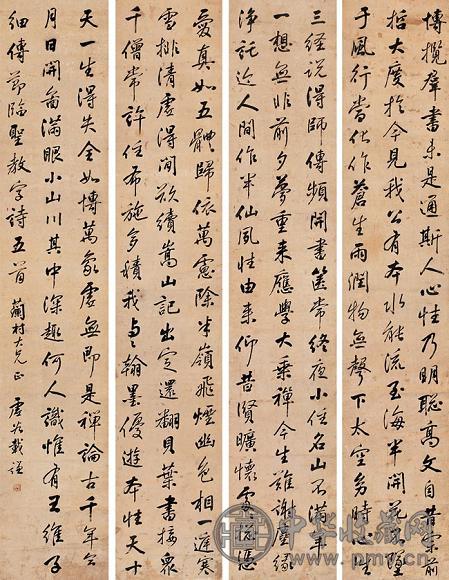 博攬群書未是通斯人心性乃明聰高文自昔宗前
哲大度於今見我公有本水能流至海半開花墮
于風行當化作蒼生雨潤物無聲下太空多時心
三經說得師傳頻開書篋常終夜小住名山不滿年
一想無非前夕夢重來應學大乘禪今生難謝塵緣
淨託近人間作半仙風性由来仰昔賢曠懷處
愛真如五體歸依萬慮除半嶺飛煙幽色相一避寒
雪排清虛得閒欲續嵩山記出定還翻貝葉書接衆
千僧常許住布施多積我翰墨優遊本性天十
天一生得失全如博萬象虛無即是禪論古千年分
月日開窗滿眼小山川其中深趣何人識惟有王維子
細傳 節臨聖教字詩五首 蘭村大兄正 虛谷戴
中华收藏网
www.pmcv.cn